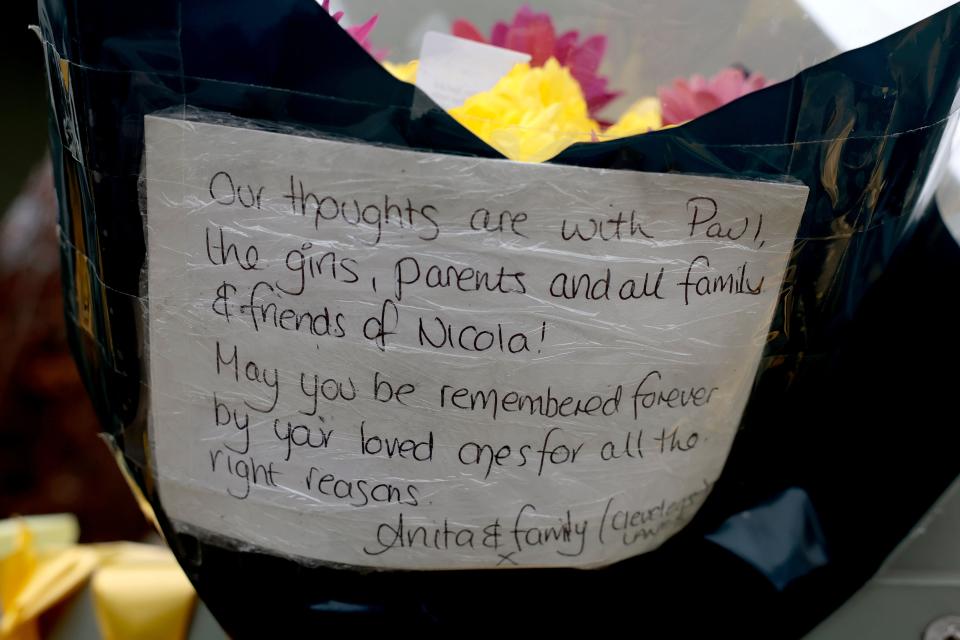 Our thoughts are with Paul,
the girls, parents and all family
& friends of Nicola!
May you be remembered forever
by your loved ones for all the
right reasons.
Anita & family (Cleveleys)
x